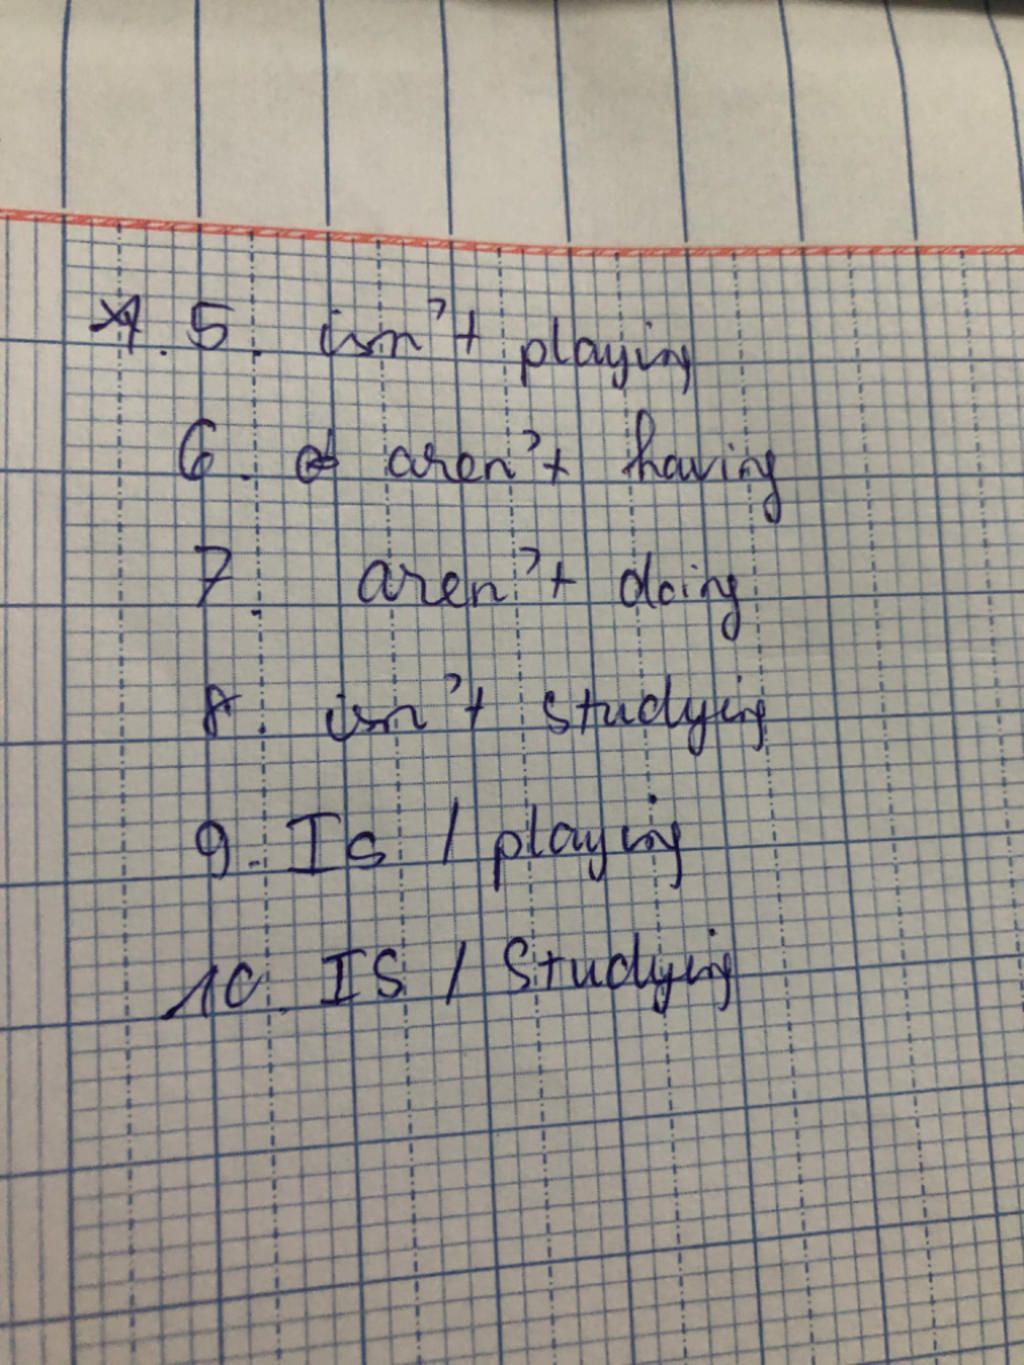 5. isn't playing
6. aren't having
7. aren't doing
8. isn't studying
9. Is / playing
10. IS / Studying